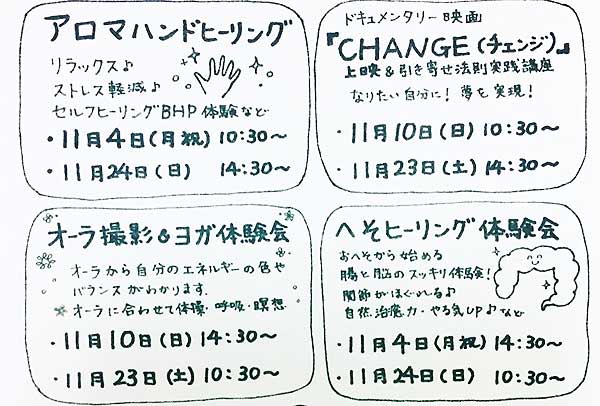 アロマハンドヒーリング
リラックス♪
ストレス軽減♪
セルフヒーリングBHP体験など
・11月4日(月祝) 10:30〜
・11月24日(日) 14:30〜
ドキュメンタリー映画
『CHANGE(チェンジ)』
上映&引き寄せ法則実践講座
なりたい自分に!夢を実現!
・11月10日(日) 10:30〜
・11月23日(土) 14:30〜
オーラ撮影&ヨガ体験会
オーラから自分のエネルギーの色や
バランスがわかります。
オーラに合わせて体操・呼吸・瞑想
・11月10日(日) 14:30〜
・11月23日(土) 10:30〜
へそヒーリング体験会
おへそから始める
腸と脳のスッキリ体験!
関節がほぐれる♪
自然治癒力・やる気UP♪など
・11月4日(月祝) 14:30〜
・11月24日(日) 10:30〜